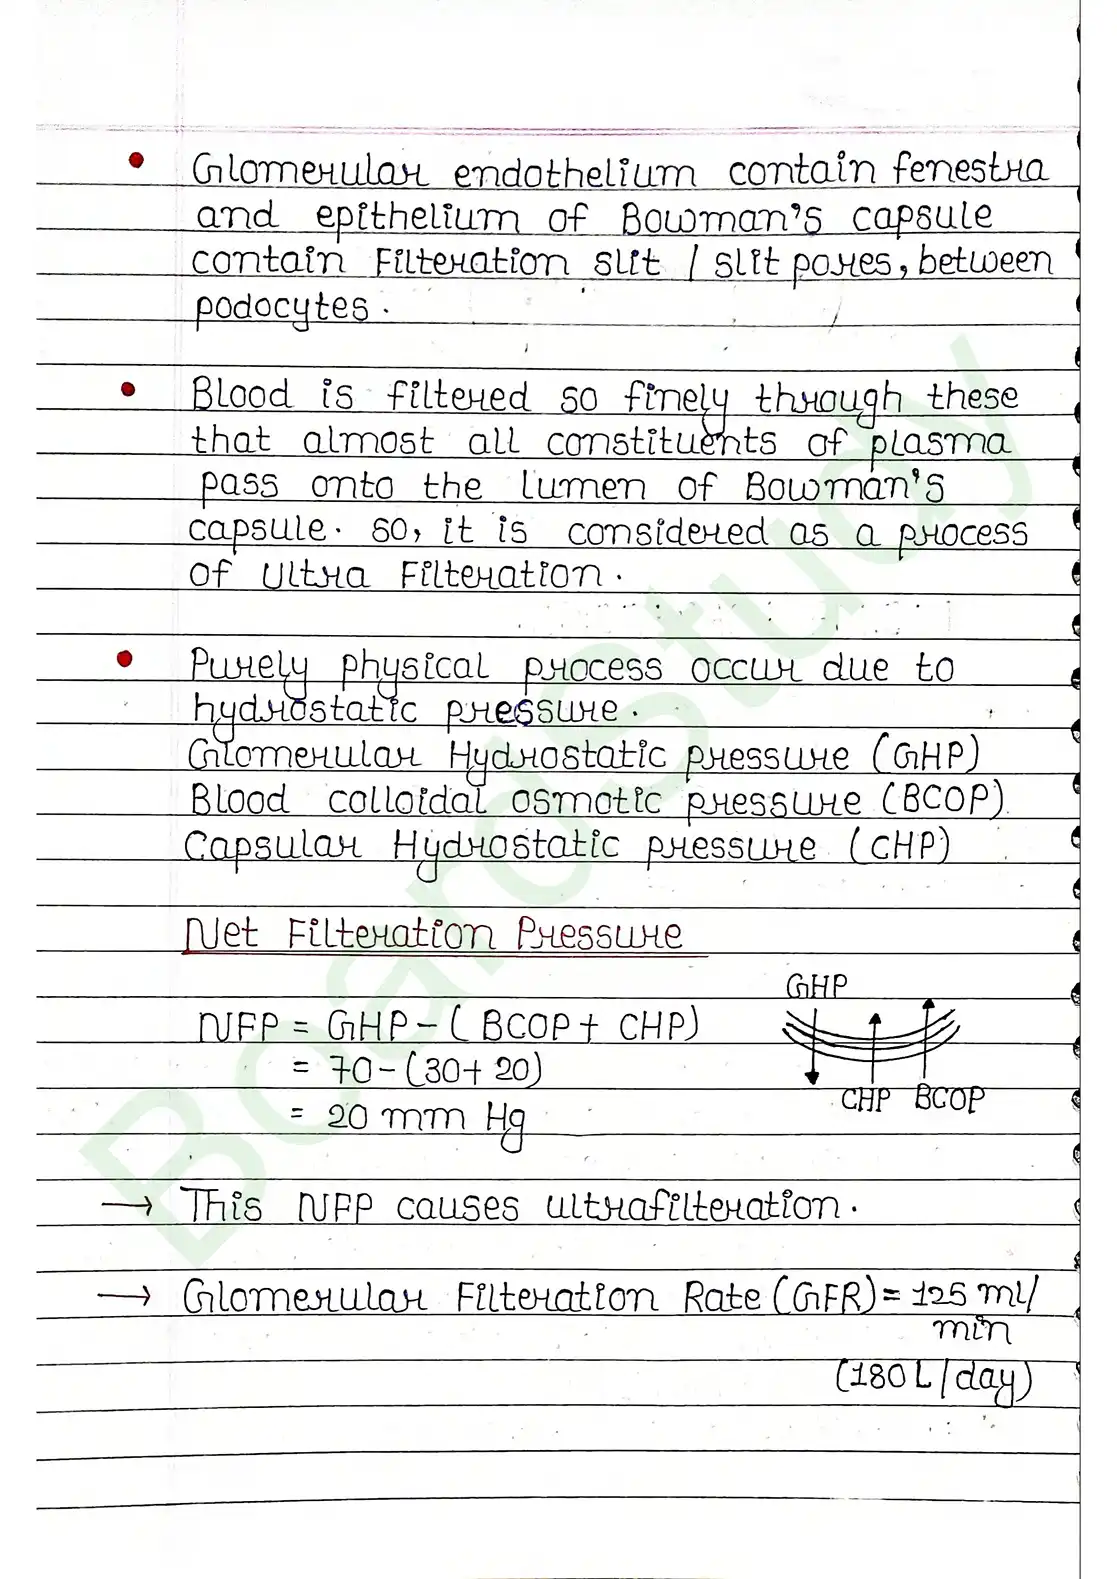 Glomerular endothelium contain fenestra
and epithelium of Bowman's capsule
contain Filteration slit / slit pores, between
podocytes.
Blood is filtered so finely through these
that almost all constituents of plasma
pass onto the lumen of Bowman's
capsule. so, it is considered as a process
of Ultra Filteration.
Purely physical process occur due to
hydrostatic pressure.
Glomerular Hydrostatic pressure (GHP)
Blood colloidal osmotic pressure (BCOP)
Capsular Hydrostatic pressure (CHP)
Net Filteration Pressure
GHP
NFP = GHP - ( BCOP + CHP)
= 70 - (30 + 20)
= 20 mm Hg
CHP BCOP
→ This NFP causes ultrafilteration.
→ Glomerular Filteration Rate (GFR) = 125 ml/
min
(180 L / day)
Board Study